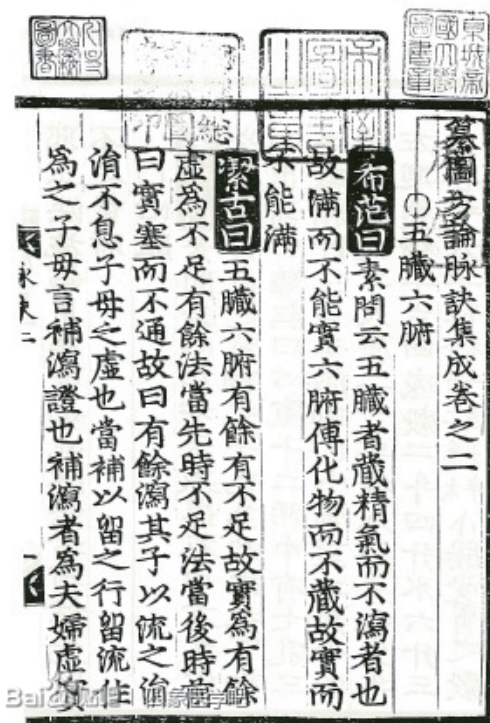 纂圖方論脉訣集成卷之二
○五臟六腑
希范曰素問云五臟者藏精氣而不瀉者也
故滿而不能實六腑傳化物而不藏故實而
不能滿
潔古曰五臟六腑有餘有不足故實為有餘
虛為不足有餘法當先時不足法當後時
曰實塞而不通故曰有餘瀉其子以流之
不息子母之虛也當補以留之行留流住
為之子母言補瀉證也補瀉者為夫婦虛
Bai